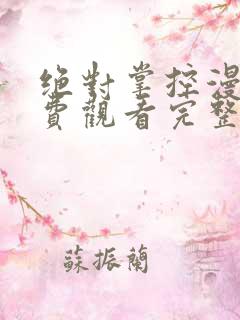 絶對掌控漫
費觀看完整
蘇振蘭